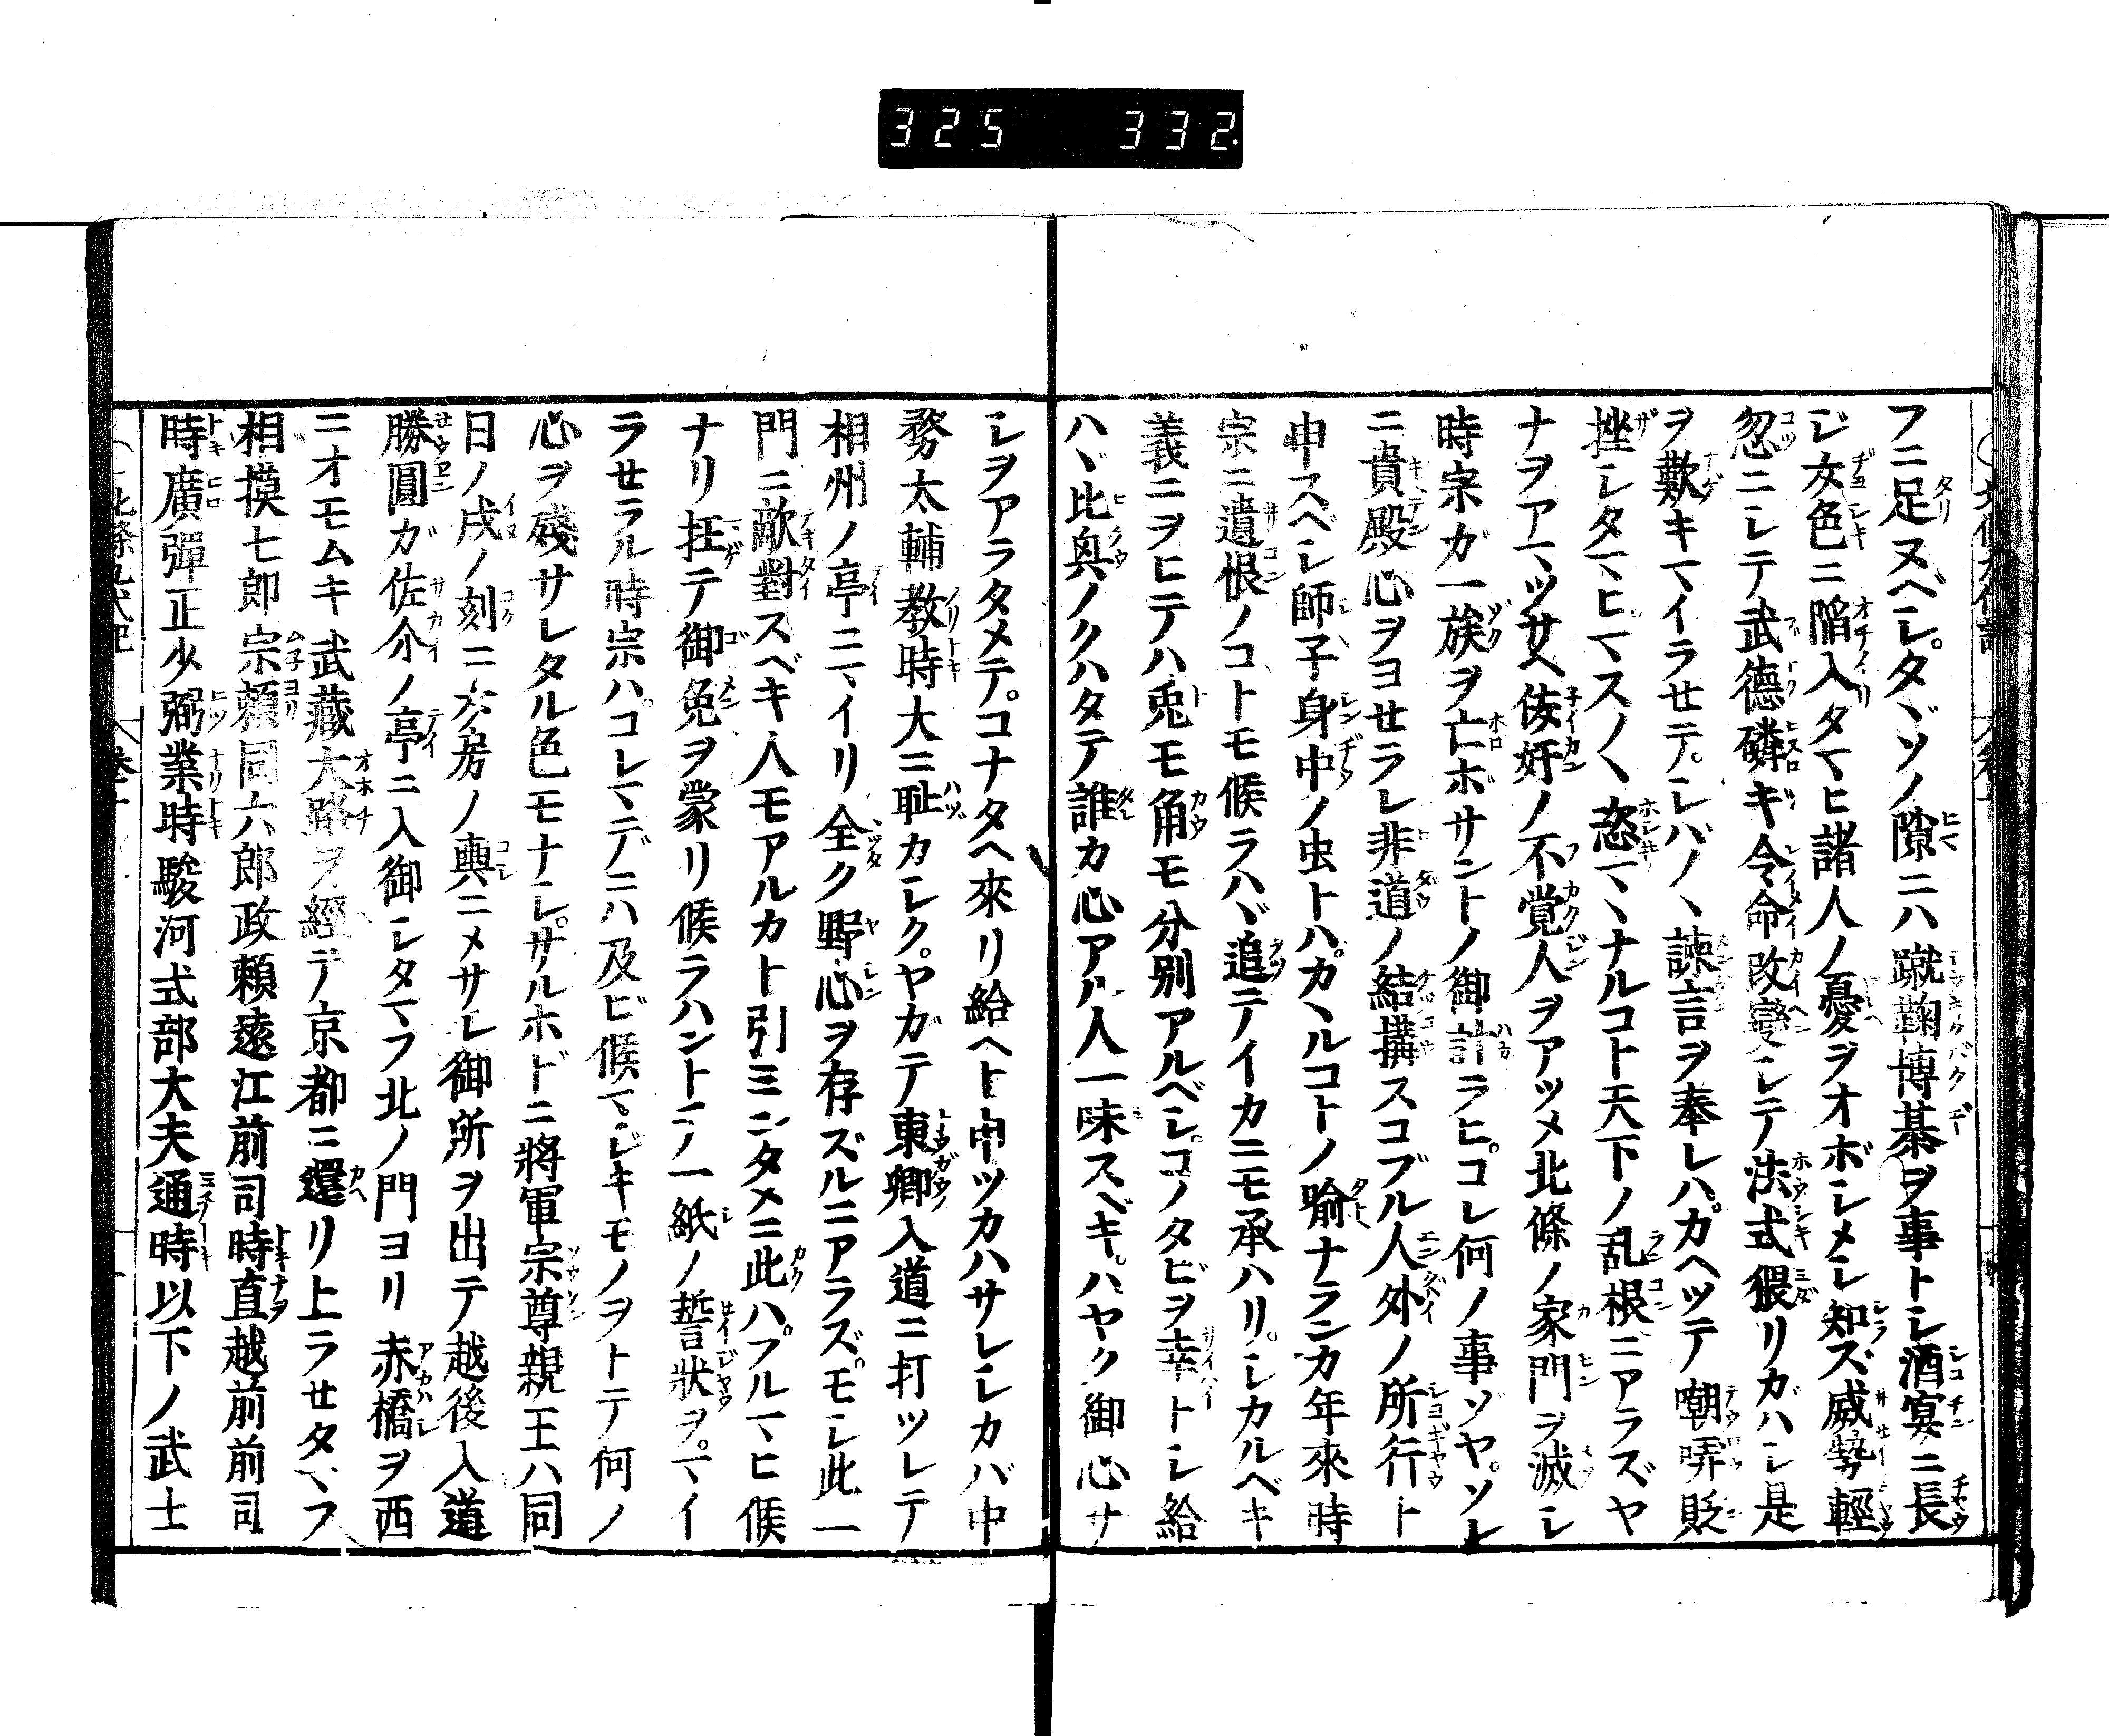 325 332
フニ足ヌベシ。タヾソノ隙ニハ蹴鞠博碁ヲ事トシ酒宴ニ長
ジ女色ニ陷入タマヒ諸人ノ憂ヲオボシメシ知ズ威勢輕
忽ニシテ武德磷ギ令命改變シテ法式猥リガハシ是
ヲ歎キマイラセテ。シバ〱諫言ヲ奉レハ。カヘツテ嘲哢貶
挫シタマヒマス〱恣マヽナルコト天下ノ乱根ニアラズヤ
ナヲアマツサヘ佞奸ノ不覚人ヲアツメ北條ノ家門ヲ滅シ
時宗ガ一族ヲ亡ボサントノ御計ラヒ。コレ何ノ事ゾヤ。ソレ
ニ貴殿心ヲヨセラレ非道ノ結搆スコブル人外ノ所行ト
申スベシ師子身中ノ虫トハ。カヽルコトノ喩ナランカ年來時
宗ニ遺恨ノコトモ候ラハヾ追テイカニモ承ハリ。シカルベキ
義ニヲヒテハ兎モ角モ分別アルベシ。コノタビヲ幸トシ給
ハヾ比興ノクハタテ誰カ心アル人一味スベキ。ハヤク御心サ
シヲアラタメテ。コナタヘ來リ給ヘト申ツカハサレシカバ中
務太輔教時大ニ耻カシク。ヤガテ東卿入道ニ打ツレテ
相州ノ亭ニマイリ全ク野心ヲ存ズルニアラズ。モシ此一
門ニ敵對スベキ人モアルカト引ミンタメニ此ハ。フルマヒ候
ナリ抂テ御免ヲ蒙リ候ラハントテノ一紙ノ誓狀ヲ。マイ
ラセラル時宗ハ。コレマデニハ及ビ候マジキモノヲトテ何ノ
心ヲ殘サレタル色モナシ。サルホドニ將軍宗尊親王ハ同
日ノ戌ノ刻ニ女房ノ輿ニメサレ御所ヲ出テ越後入道
勝圓ガ佐介ノ亭ニ入御シタマフ北ノ門ヨリ赤橋ヲ西
ニオモムキ武藏大路ヲ經テ京都ニ還リ上ラセタマフ
相摸七郎宗頼同六郎政頼遠江前司時直越前前司
時廣彈正少弼業時駿河式部大夫通時以下ノ武士